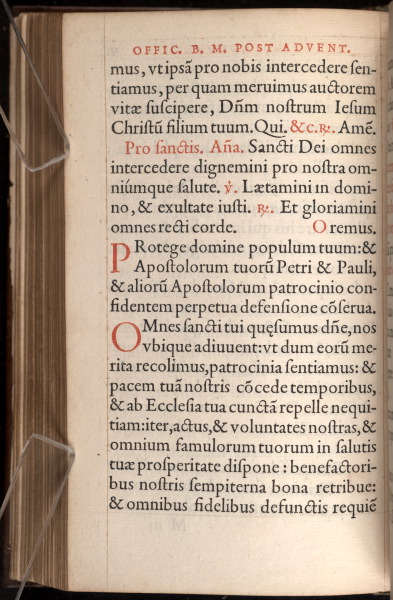 OFFIC. B. M. POST ADVENT.
mus, vt ipsã pro nobis intercedere ſen-
tiamus, per quam meruimus auctorem
vitæ ſuſcipere, Dñm noſtrum Ieſum
Chriſtũ filium tuum. Qui. &c. ℟. Amẽ.
Pro ſanctis. Aña. Sancti Dei omnes
intercedere dignemini pro noſtra om-
niúmque ſalute. ℣. Lætamini in domi-
no, & exultate iuſti. ℟. Et gloriamini
omnes recti corde. Oremus.
PRotege domine populum tuum: &
Apoſtolorum tuorũ Petri & Pauli,
& aliorũ Apoſtolorum patrocinio con-
fidentem perpetua defenſione cõſerua.
OMnes ſancti tui quęſumus dñe, nos
vbique adiuuent: vt dum eorũ me-
rita recolimus, patrocinia ſentiamus: &
pacem tuã noſtris cõcede temporibus,
& ab Eccleſia tua cunctã repelle nequi-
tiam: iter, actus, & voluntates noſtras, &
omnium famulorum tuorum in ſalutis
tuæ proſperitate diſpone: benefactori-
bus noſtris ſempiterna bona retribue:
& omnibus fidelibus defunctis requiẽ